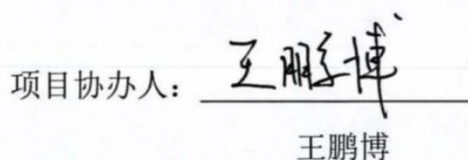 项目协办人：王鹏博
王鹏博